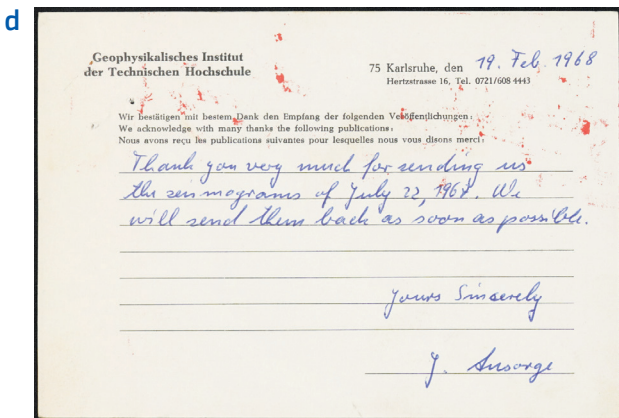 d
Geophysikalisches Institut
der Technischen Hochschule
75 Karlsruhe, den 19. Feb. 1968
Hertzstrasse 16, Tel. 0721/608 4443
Wir bestätigen mit bestem Dank den Empfang der folgenden Veröffentlichungen:
We acknowledge with many thanks the following publications:
Nous avons reçu les publications suivantes pour lesquelles nous vous disons merci:
Thank you very much for sending us
the seismograms of July 22, 1967. We
will send them back as soon as possible.
Yours Sincerely
J. Ansorge